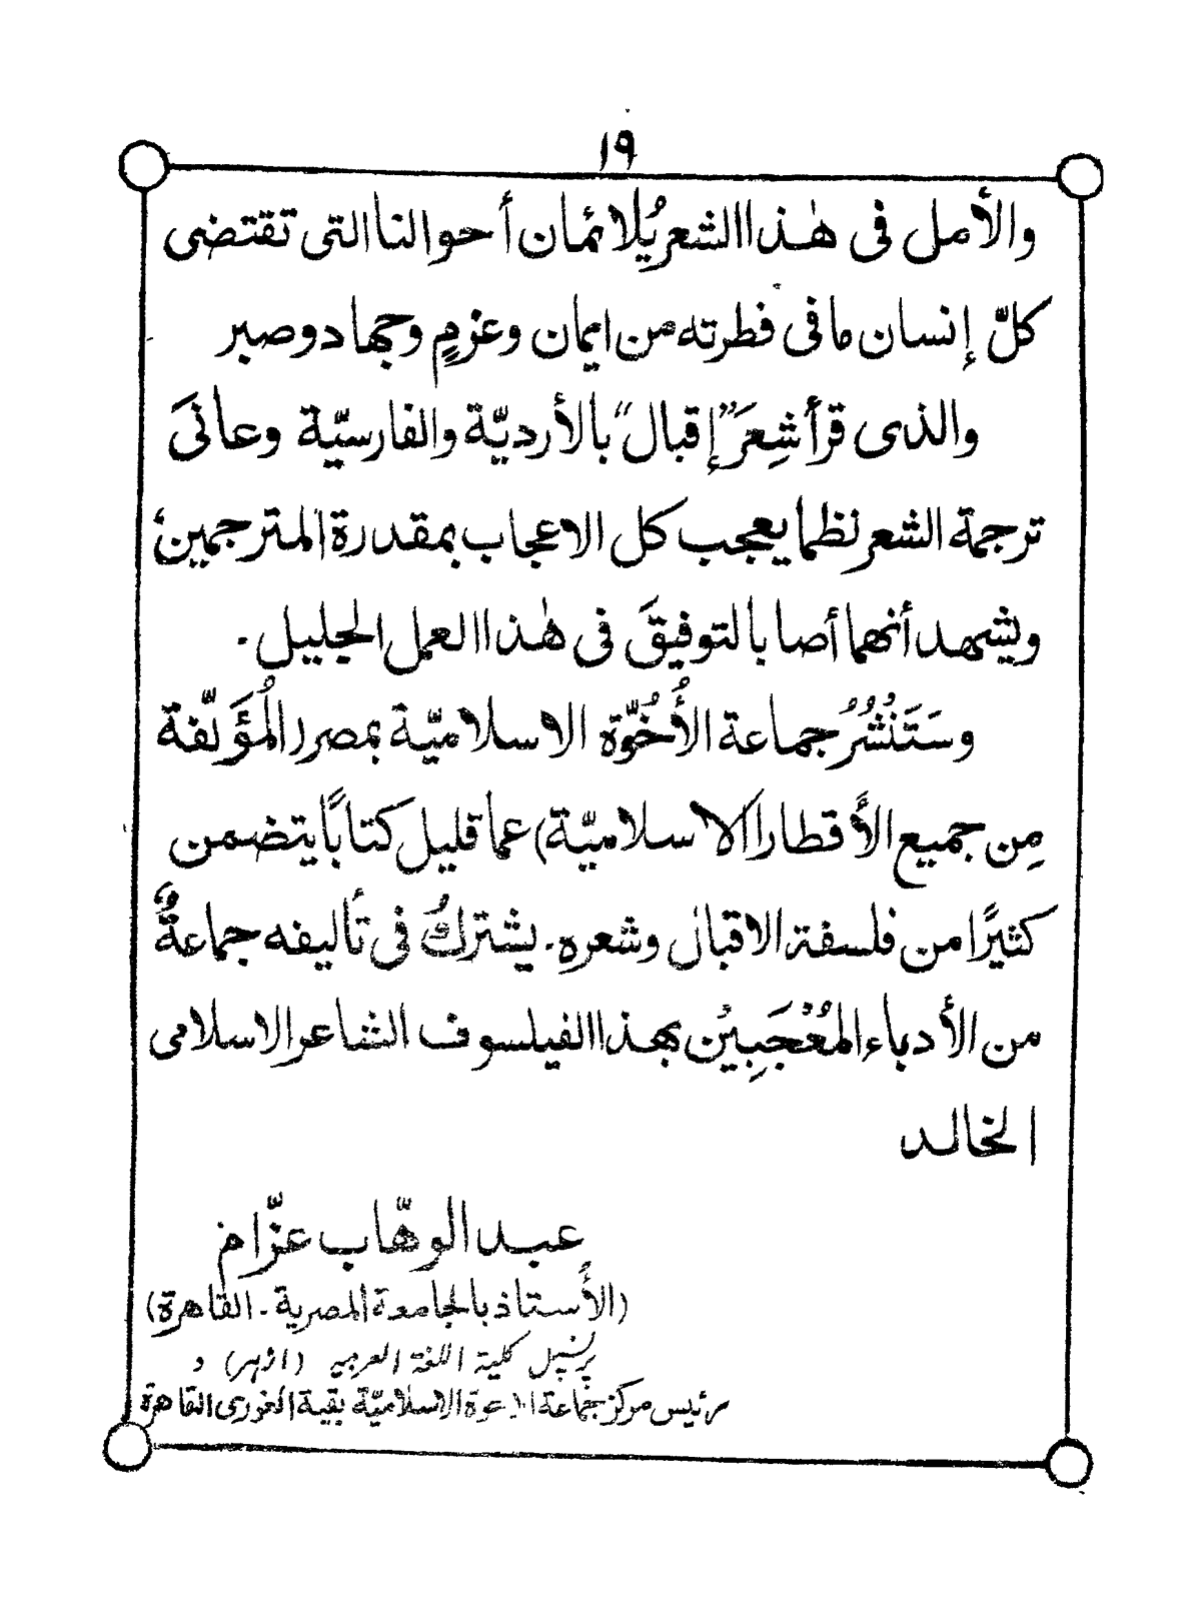 ١٩
والأمل فى هٰذا الشعر يُلائمان أحوالنا التى تقتضى
كلّ إنسان ما فى فطرته من ايمان وعزمٍ وجهاد وصبر
والذى قرأ شِعرَ "إقبال" بالأرديّة والفارسيّة وعانىَ
ترجمة الشعر نظما يعجب كل الاعجاب بمقدرة المترجمين؛
ويشهد أنهما أصابا التوفيقَ فى هٰذا العمل الجليل.
وسَتَنْشُرُ جماعة الأُخُوّة الاسلاميّة بمصر (المُؤَلّفة
مِن جميع الأقطار الاسلاميّة) عما قليل كتابًا يتضمن
كثيرًا من فلسفة الاقبال وشعره. يشتركُ فى تأليفه جماعةٌ
من الأدباء المُعْجَبِيْن بهذا الفيلسوف الشاعر الاسلامى
الخالد
عبد الوهّاب عزّام
(الأستاذ بالجامعة المصرية - القاهرة)
پرنسپل كلية اللغة العربيه (ازهر) و
رئيس مركز جماعة الاخوة الاسلاميّة بقبة الغورى القاهرة